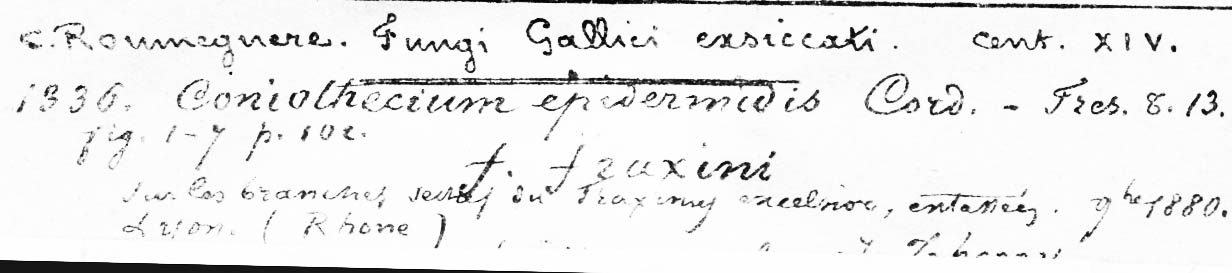 C. Roumeguere. Fungi Gallici exsiccati. Cent. XIV.
1336. Coniothecium epidermidis Cord. - Fres. t. 13.
fig. 1-7 p.
f. fraxini
Sur les branches seches du Fraxinus excelsior, entassées. 9bre 1880.
Lyon. (Rhone)